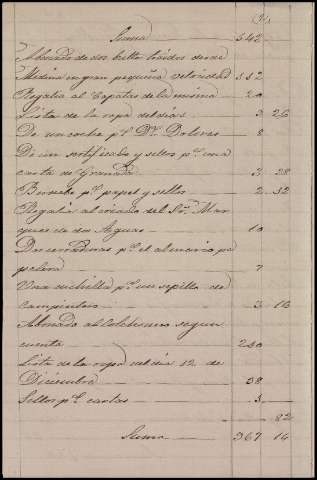 Suma 542
Abonado de dos billetes traidos desde
Medina en gran pequeña velocidad 112
Regalia al Capataz de la misma 20
Lista de la ropa del dias 3 26
De un coche pª Dª Dolores 8
De un certificado y sellos pª una
carta de Granada 3 28
Bernabe pª papel y sellos 2 32
Regalia al criado del Sor Mar
ques de dos Aguas 10
Dos cerraduras pª el almario pa
pelera 7
Una cuchilla pª un cepillo de
carpintero 3 16
Abonado al Colchonero segun
cuenta 240
Lista de la ropa del dia 12 de
Diciembre 38
Sellos pª cartas 3
82
Suma 967 14